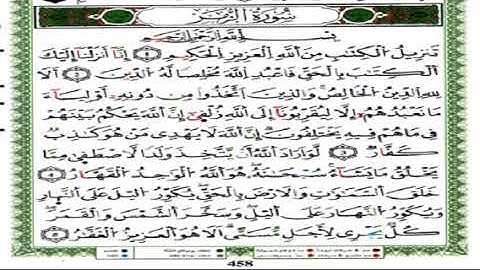 سُورَةُ الزُّمَر
بِسْمِ اللَّهِ الرَّحْمَٰنِ الرَّحِيمِ
تَنزِيلُ الْكِتَٰبِ مِنَ اللَّهِ الْعَزِيزِ الْحَكِيمِ ۝١ إِنَّآ أَنزَلْنَآ إِلَيْكَ
الْكِتَٰبَ بِالْحَقِّ فَاعْبُدِ اللَّهَ مُخْلِصًا لَّهُ الدِّينَ ۝٢ أَلَا
لِلَّهِ الدِّينُ الْخَالِصُ وَالَّذِينَ اتَّخَذُوا مِن دُونِهِ أَوْلِيَآءَ
مَا نَعْبُدُهُمْ إِلَّا لِيُقَرِّبُونَآ إِلَى اللَّهِ زُلْفَىٰٓ إِنَّ اللَّهَ يَحْكُمُ بَيْنَهُمْ
فِى مَا هُمْ فِيهِ يَخْتَلِفُونَ إِنَّ اللَّهَ لَا يَهْدِى مَنْ هُوَ كَٰذِبٌ
كَفَّارٌ ۝٣ لَّوْ أَرَادَ اللَّهُ أَن يَتَّخِذَ وَلَدًا لَّاصْطَفَىٰ مِمَّا
يَخْلُقُ مَا يَشَآءُ سُبْحَٰنَهُ هُوَ اللَّهُ الْوَٰحِدُ الْقَهَّارُ ۝٤
خَلَقَ السَّمَٰوَٰتِ وَالْأَرْضَ بِالْحَقِّ يُكَوِّرُ الَّيْلَ عَلَى النَّهَارِ
وَيُكَوِّرُ النَّهَارَ عَلَى الَّيْلِ وَسَخَّرَ الشَّمْسَ وَالْقَمَرَ
كُلٌّ يَجْرِى لِأَجَلٍ مُّسَمًّى أَلَا هُوَ الْعَزِيزُ الْغَفَّٰرُ ۝٥
458